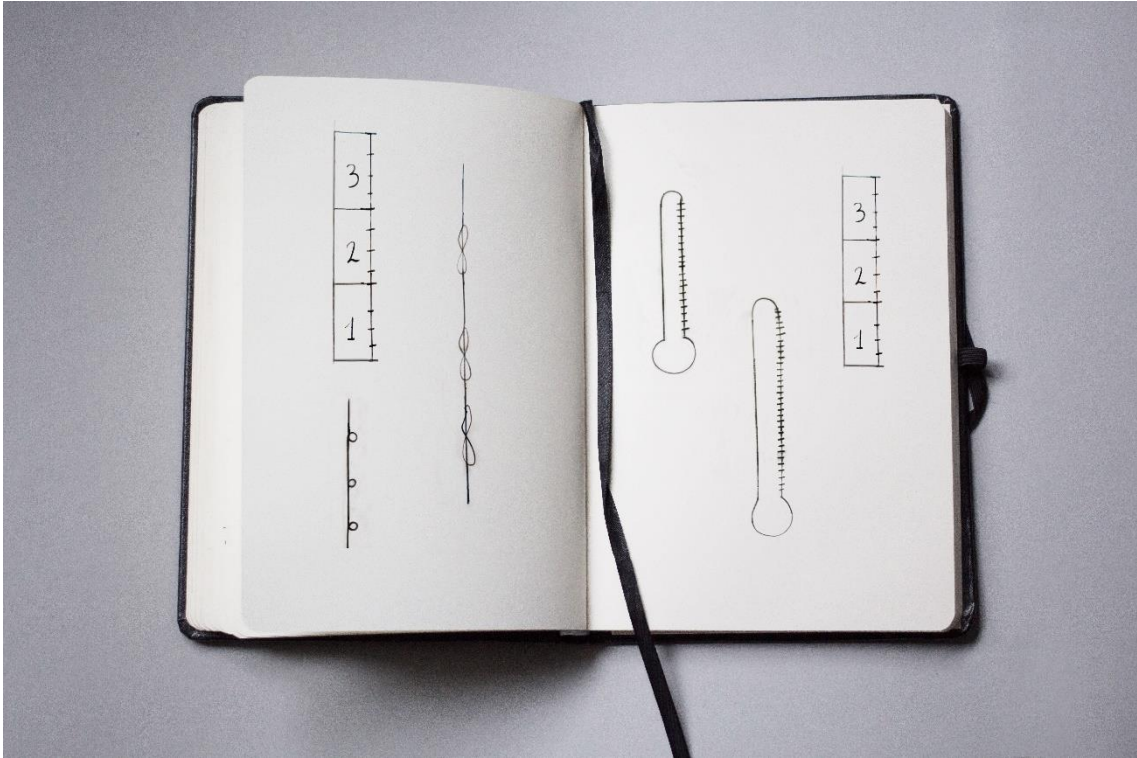 3
2
1
3
2
1